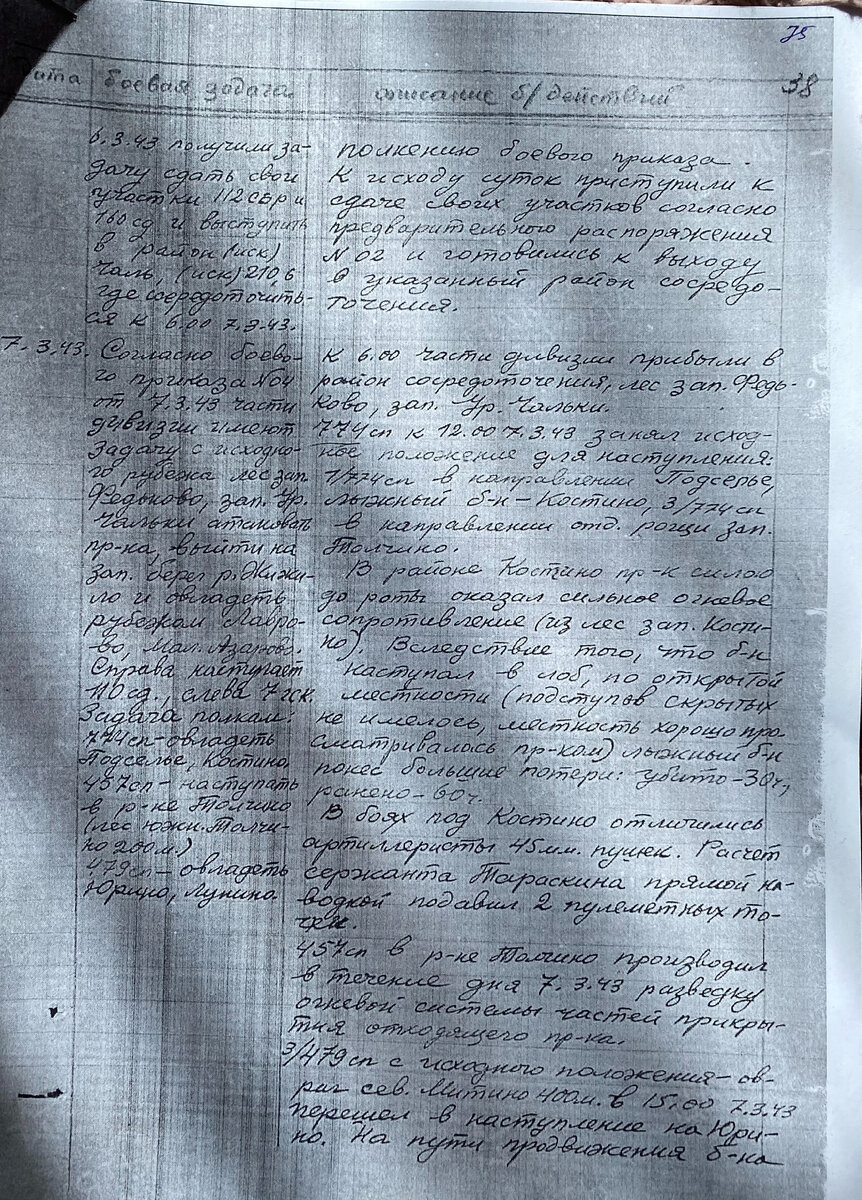 75
38
дата
боевая задача
описание б/действий
6.3.43 получили за-
дачу сдать свои
участки 112 СБР и
160 сд и выступить
в район (иск)
Чаль, (иск) 210,6
где сосредоточить-
ся к 6.00 7.3.43.
полнению боевого приказа.
К исходу суток приступили к
сдаче своих участков согласно
предварительного распоряжения
N 02 и готовились к выходу
в указанный район сосредо-
точения.
7.3.43.
Согласно боево-
го приказа N04
от 7.3.43 части
дивизии имеют
Задачу с исходно-
го рубежа лес зап.
Федьково, зап. Ур.
Чальки атаковать
пр-ка, выйти на
зап. берег р.
и овладеть
рубежом Лавро-
во, Мал. Азарово.
Справа наступает
110 сд., слева 7 гск.
Задача полкам:
774сп - овладеть
Подселье, Костино,
457сп - наступать
в р-не Толчино
(лес южн. Толчи-
но 200м.)
479сп - овладеть
Юрино, Лунино.
К 6.00 части дивизии прибыли в
район сосредоточения, лес зап. Федь-
ково, зап. Ур. Чальки.
774сп к 12.00 7.3.43 занял исход-
ное положение для наступления:
1/774сп в направлении Подселье,
лыжный б-н - Костино, 3/774 сп
в направлении отд. рощи зап.
Толчино.
В районе Костино пр-к силою
до роты оказал сильное огневое
сопротивление (из лес зап. Кости-
но). Вследствие того, что б-н
наступал в лоб, по открытой
местности (подступов скрытых
не имелось, местность хорошо про-
сматривалась пр-ком) лыжный б-н
понес большие потери: убито - 30ч,
ранено - 60ч.
В боях под Костино отличились
артиллеристы 45мм. пушек. Расчет
сержанта Тараскина прямой на-
водкой подавил 2 пулеметных то-
чки.
457сп в р-не Толчино производил
в течение дня 7.3.43 разведку
огневой системы частей прикры-
тия отходящего пр-ка.
3/479сп с исходного положения - ов-
раг сев. Митино 400м. в 15.00 7.3.43
перешел в наступление на Юри-
но. На пути продвижения б-на